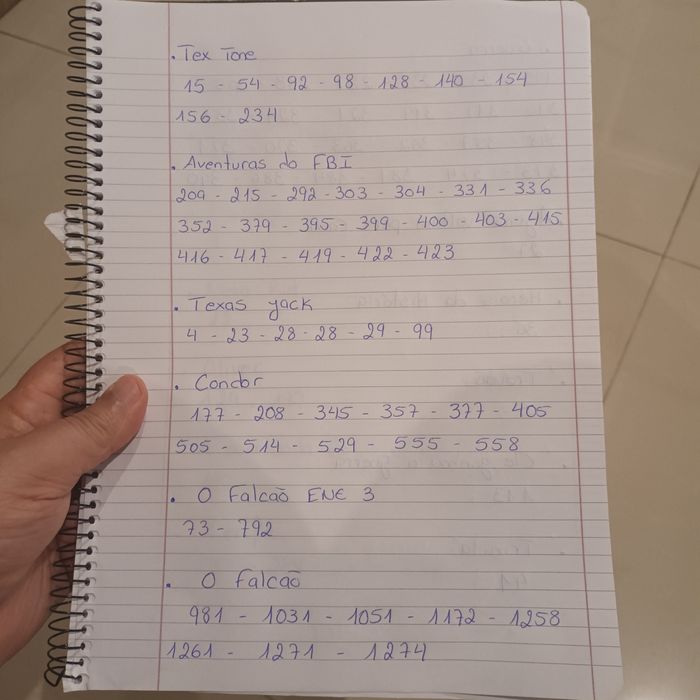 . Tex Tone
15 - 54 - 92 - 98 - 128 - 140 - 154
156 - 234
. Aventuras do FBI
209 - 215 - 292 - 303 - 304 - 331 - 336
352 - 379 - 395 - 399 - 400 - 403 - 415
416 - 417 - 419 - 422 - 423
. Texas yack
4 - 23 - 28 - 28 - 29 - 99
. Condor
177 - 208 - 345 - 357 - 377 - 405
505 - 514 - 529 - 555 - 558
. O Falcão ENE 3
73 - 792
. O Falcão
981 - 1031 - 1051 - 1172 - 1258
1261 - 1271 - 1274